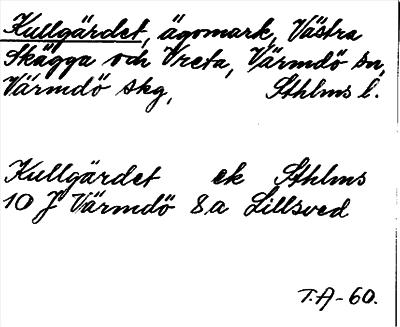 Kullgärdet, ägomark, Västra
Skägga och Vreta, Värmdö sn,
Värmdö skg, Sthlms l.
Kullgärdet ek Sthlms
10 J Värmdö 8a Lillsved
T.A-60.